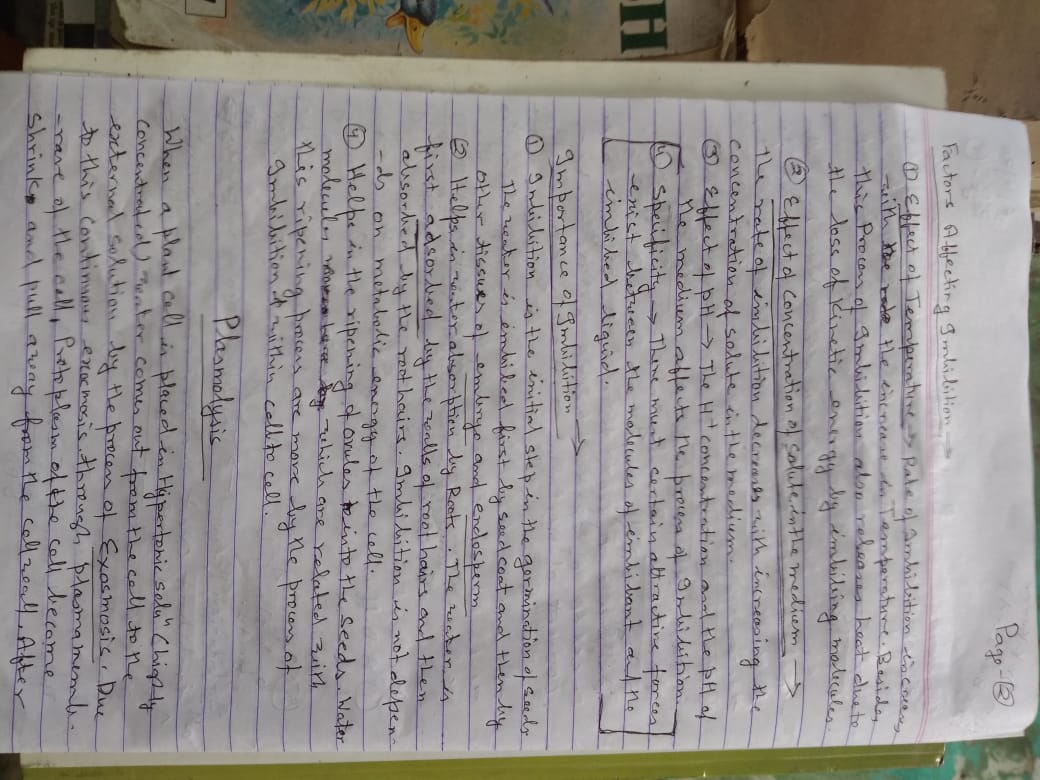 Page - (2)
Factors Affecting Imbibition →
(1) Effect of Temperature → Rate of Imbibition increases
with the increase in Temperature. Besides
this Process of Imbibition also releases heat due to
the loss of Kinetic energy by imbibing molecules.
(2) Effect of Concentration of solute in the medium →
the rate of imbibition decreases with increasing the
concentration of solute in the medium.
(3) Effect of pH → The H+ concentration and the pH of
the medium affects the process of Imbibition
(4) Specificity → There must certain attractive forces
exist between the molecules of imbibant and the
imbibed liquid.
Importance of Imbibition →
(1) Imbibition is the initial step in the germination of seeds
The water is imbibed first by seed coat and then by
other tissues of embryo and endosperm
(2) Helps in water absorption by Roots. The water is
first adsorbed by the walls of root hairs and then
absorbed by the root hairs. Imbibition is not depen-
-ds on metabolic energy of the cell.
(4) Helps in the ripening of ovules into the seeds. Water
molecules which are related with
this ripening process are move by the process of
Imbibition within cell to cell.
Plasmolysis
When a plant cell is placed in Hypertonic soluⁿ (highly
concentrated) water comes out from the cell to the
external solution by the process of Exosmosis. Due
to this continuous exosmosis through plasma memb-
-rane of the cell, Protoplasm of the cell become
shrink and pull away from the cell wall. After
H